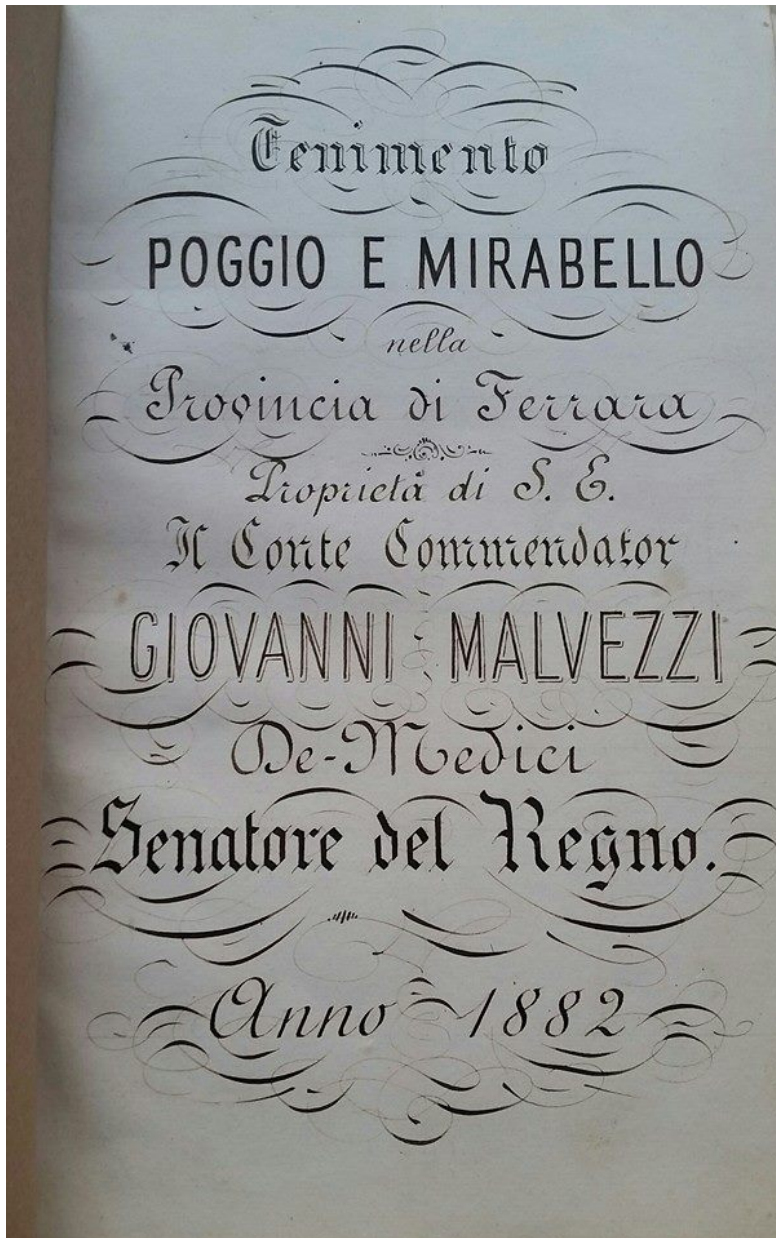 Tenimento
POGGIO E MIRABELLO
nella
Provincia di Ferrara
Proprietà di S. E.
Il Conte Commendator
GIOVANNI MALVEZZI
De-Medici
Senatore del Regno.
Anno 1882